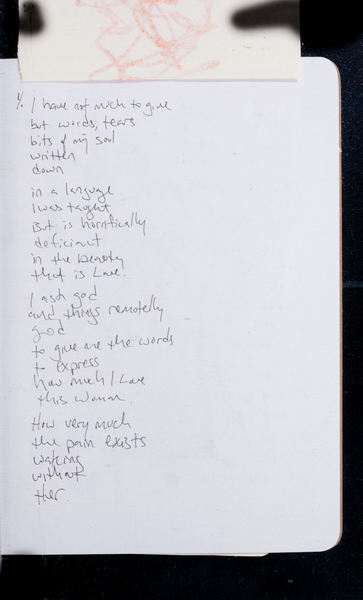 1/. I have not much to give
but words, tears
bits of my soul
written
down
in a language
I was taught
But is horrifically
deficient
in the beauty
that is Love.
I ask god
and things remotely
god
to give me the words
to express
how much I Love
this woman.
How very much
the pain exists
waking
without
Her.